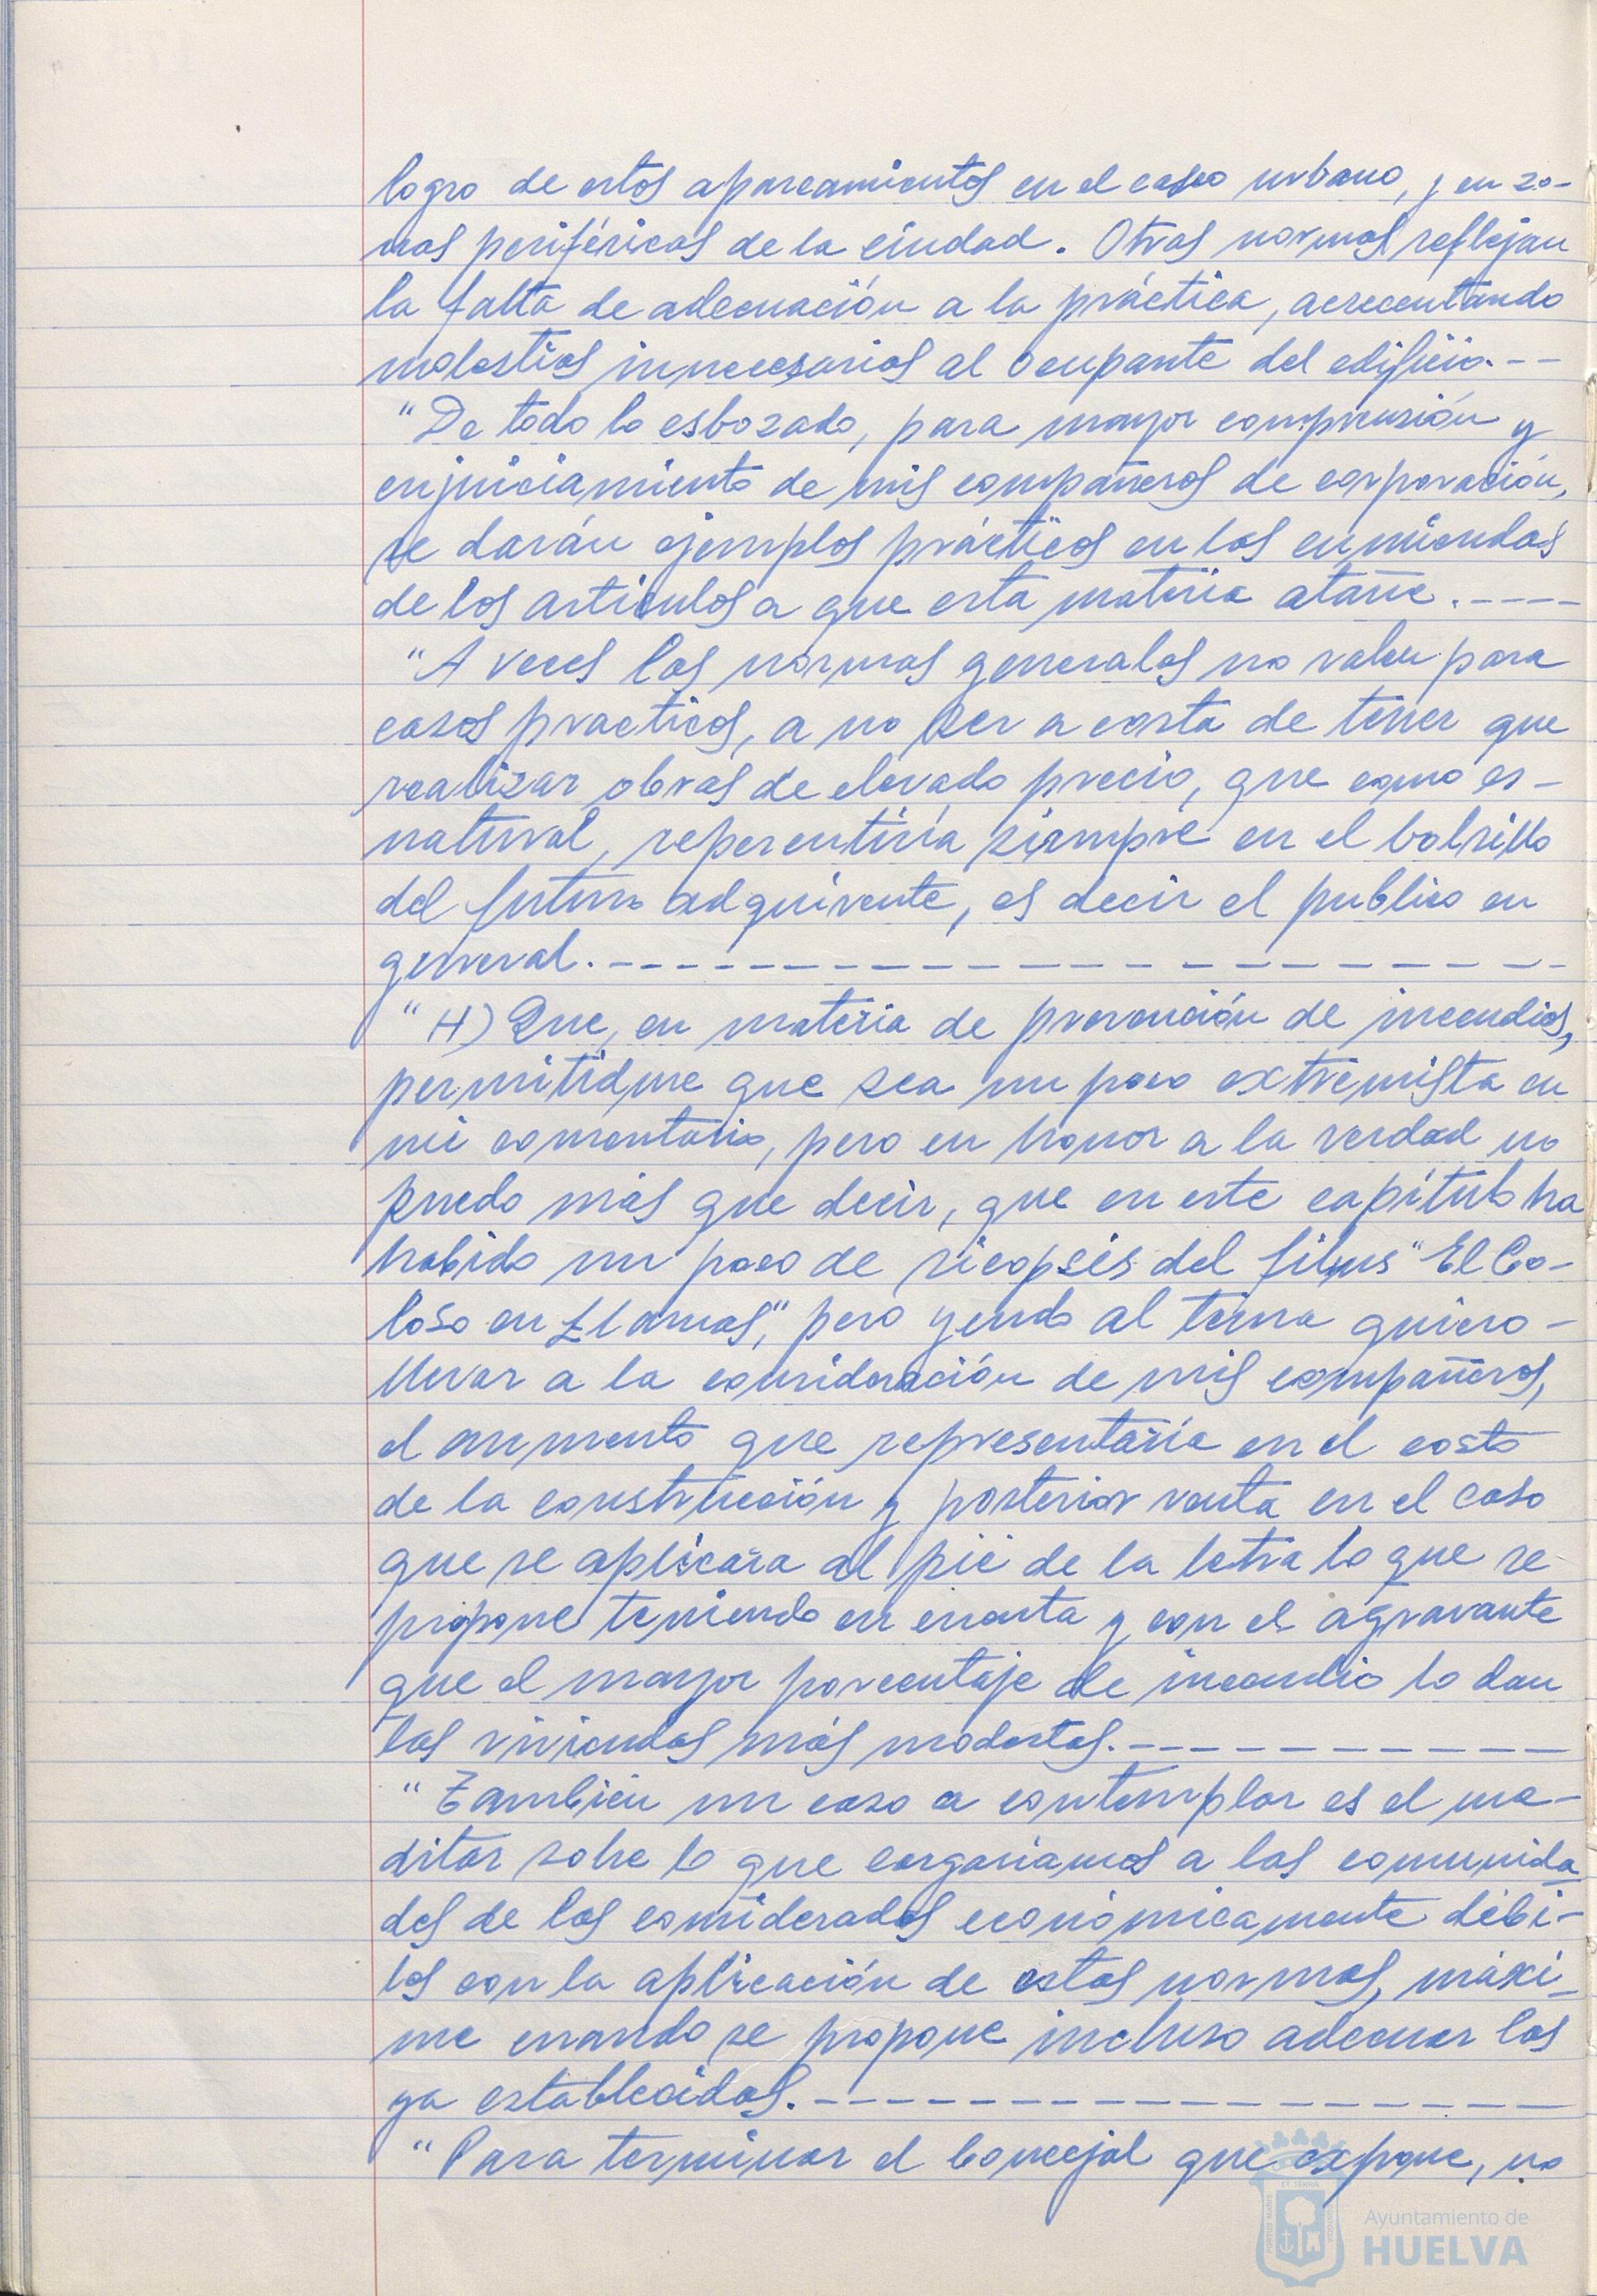 logro de estos aparcamientos en el casco urbano, y en zo-
nas periféricas de la ciudad. Otras normas reflejan
la falta de adecuación a la práctica, acrecentando
molestias innecesarias al ocupante del edificio.--
"De todo lo esbozado, para mayor comprensión y
enjuiciamiento de mis compañeros de corporación,
se darán ejemplos prácticos en las enmiendas
de los artículos a que esta materia atañe.----
"A veces las normas generales no valen para
casos practicos, a no ser a costa de tener que
realizar obras de elevado precio, que como es-
natural, repercutiría siempre en el bolsillo
del futuro adquirente, es decir el publico en
general.-------------------
"H) Que, en materia de prevención de incendios,
permitidme que sea un poco extremista en
mi comentario, pero en honor a la verdad no
puedo más que decir, que en este capítulo ha
habido un poco de sicopsis del films "El Co-
loso en Llamas", pero yendo al tema quiero-
llevar a la consideración de mis compañeros,
el aumento que representaría en el costo
de la construcción y posterior venta en el caso
que se aplicara al pié de la letra lo que se
propone teniendo en cuenta y con el agravante
que el mayor porcentaje de incendio lo dan
las viviendas más modestas.-----------
"También un caso a contemplar es el me-
ditar sobre lo que cargariamos a las comunida
des de los considerados económicamente débi-
les con la aplicación de estas normas, máxi-
me cuando se propone incluso adecuar las
ya establecidas.-----------------
"Para terminar el Concejal que expone, no
Ayuntamiento de
HUELVA